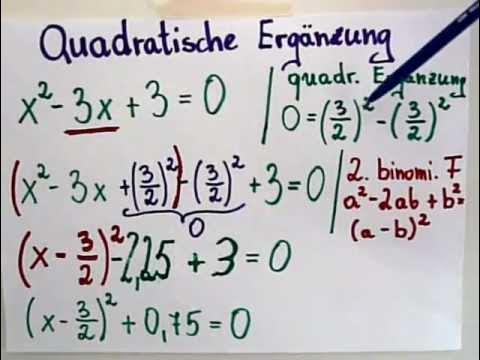 Quadratische Ergänzung
x² - 3x + 3 = 0
quadr. Ergänzung
0 = (3/2)² - (3/2)²
(x² - 3x + (3/2)²) - (3/2)² + 3 = 0
0
2. binomi. F
a² - 2ab + b² =
(a - b)²
(x - 3/2)² - 2,25 + 3 = 0
(x - 3/2)² + 0,75 = 0